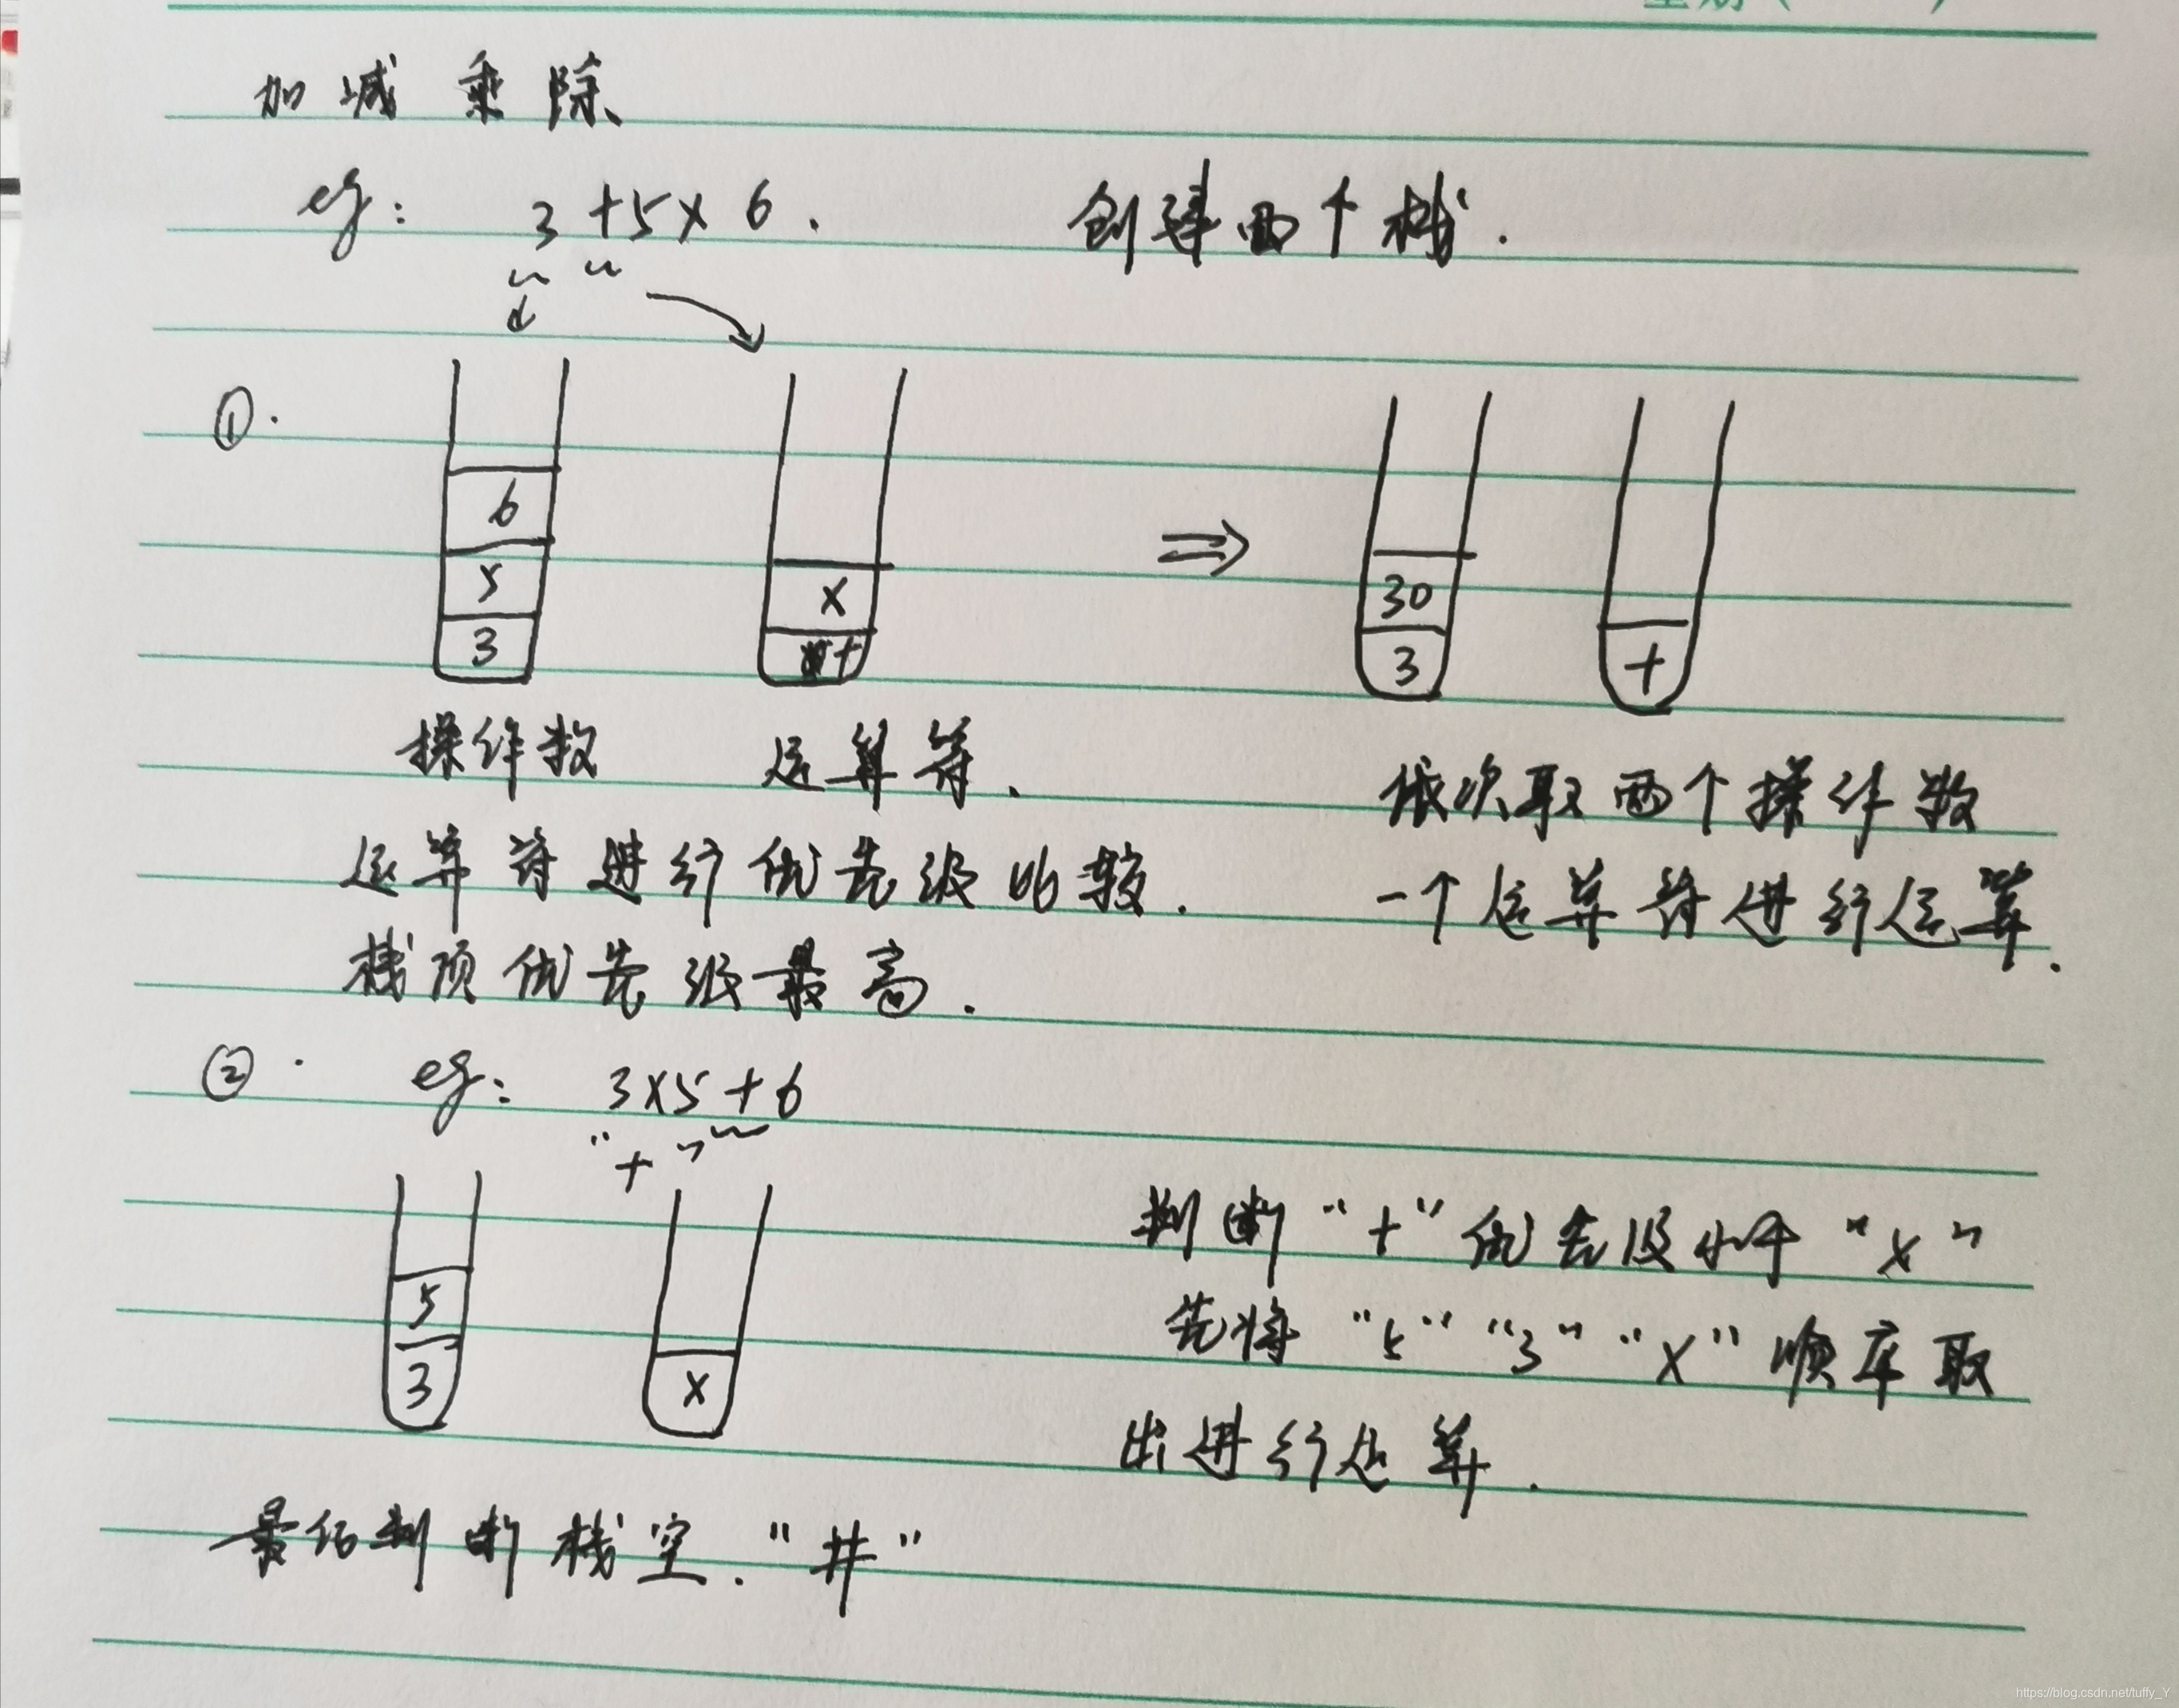 星期(      )
加 减 乘 除、
eg: 3 + 5 × 6 . 创建两个栈.
①.
6
5
3
×
+
⇒
30
3
+
操作数 运算符.
依次取两个操作数
运算符进行优先级比较.
一个运算符进行运算.
栈顶优先级最高.
②. eg: 3×5+6
"+"
5
3
×
判断"+"优先级小于"×"
先将"5""3""×"顺序取
出进行运算.
最后判断栈空."井"
https://blog.csdn.net/tuffy_Y